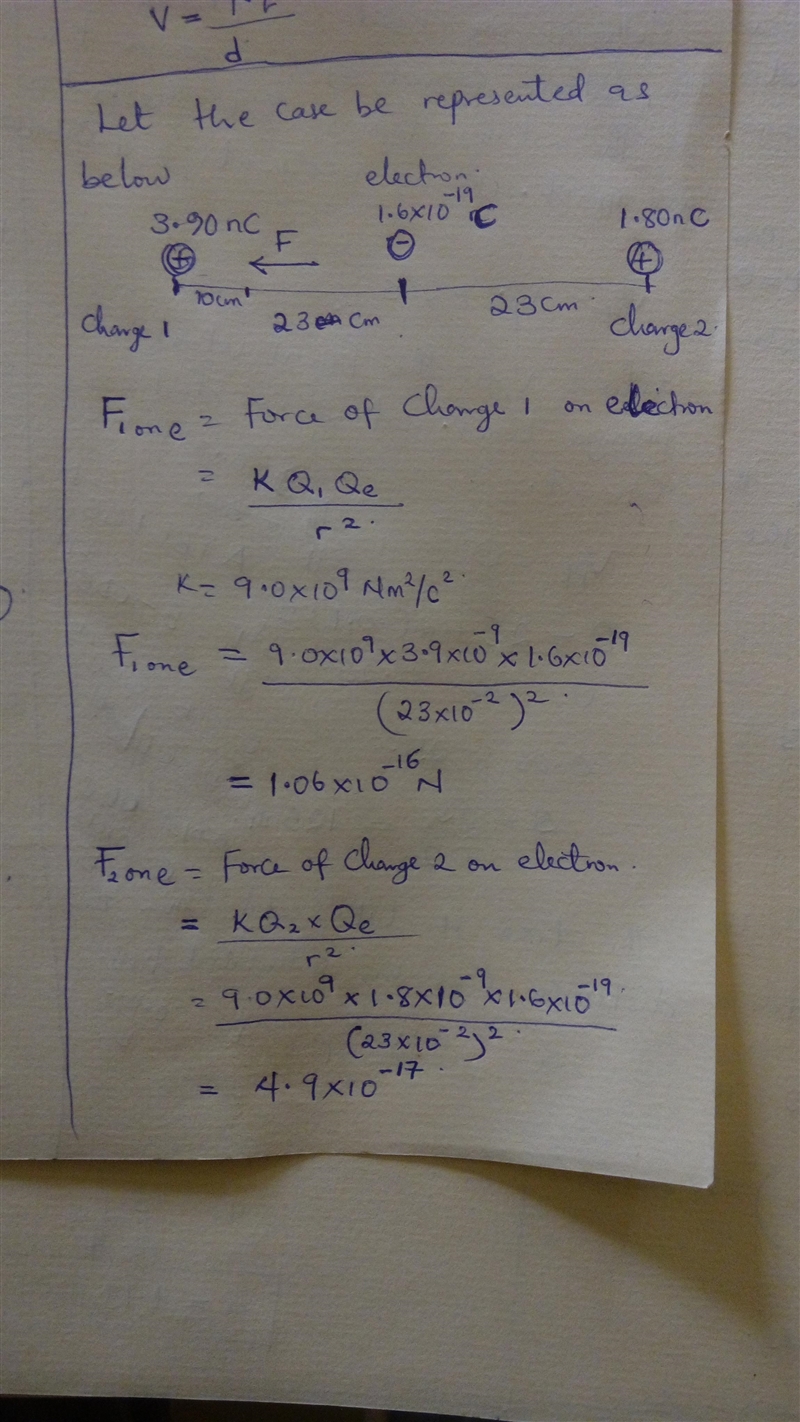 V =
d
Let the case be represented as
below electron.
3.90 nC F 1.6x10⁻¹⁹ C 1.80nC
+ - +
10cm 23 cm 23 cm
Charge 1 Charge 2.
F₁ on e = Force of Charge 1 on electron
= K Q₁ Qe
r².
K = 9.0x10⁹ Nm²/c².
F₁ on e = 9.0x10⁹ x 3.9x10⁻⁹ x 1.6x10⁻¹⁹
(23x10⁻²)².
= 1.06x10⁻¹⁶ N
F₂ on e = Force of Charge 2 on electron.
= KQ₂ x Qe
r².
= 9.0x10⁹ x 1.8x10⁻⁹ x 1.6x10⁻¹⁹.
(23x10⁻²)².
= 4.9x10⁻¹⁷.